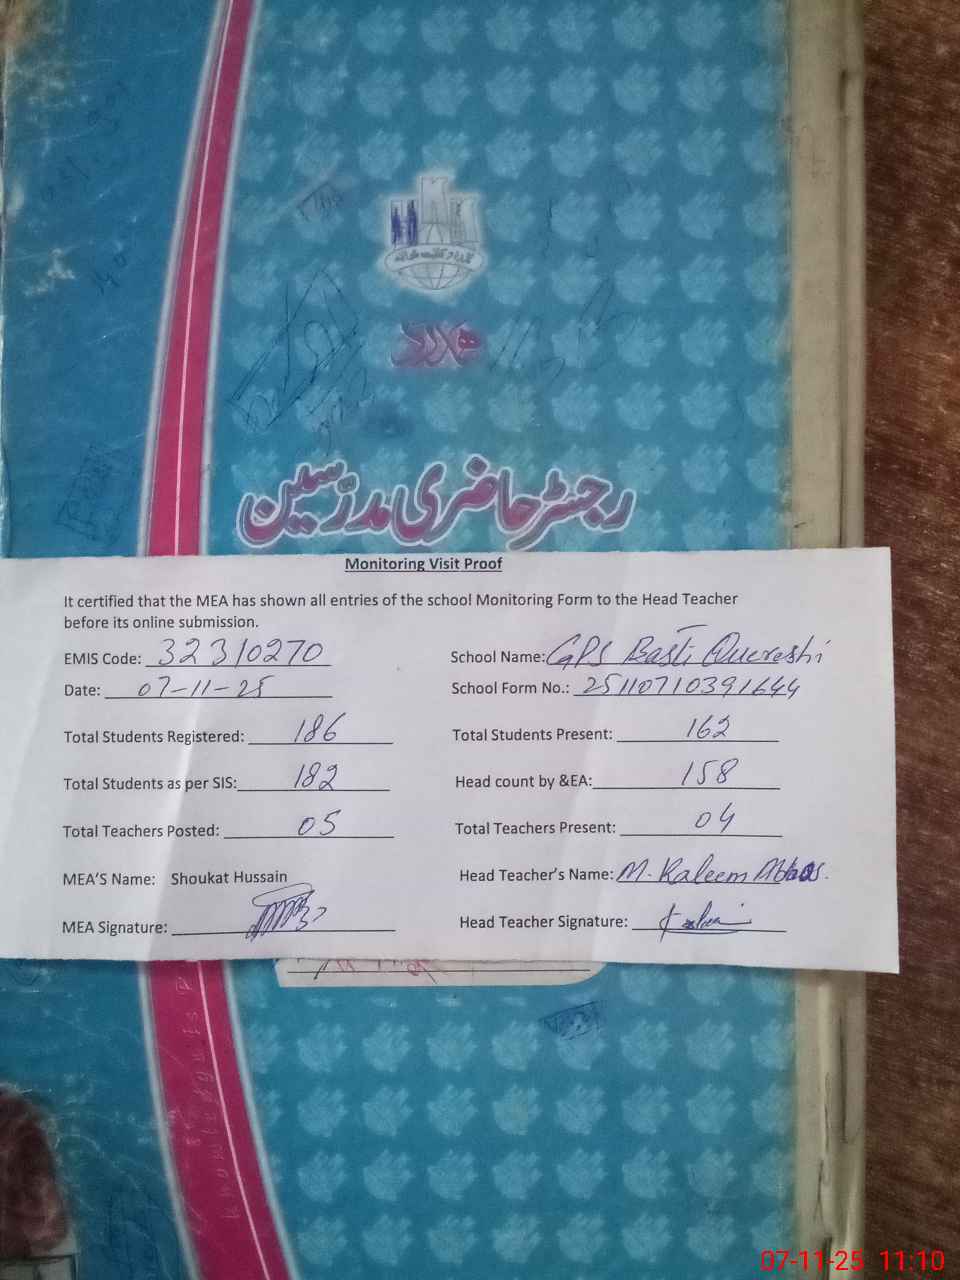 ھمدرد
رجسٹر حاضری مدرسین
Monitoring Visit Proof
It certified that the MEA has shown all entries of the school Monitoring Form to the Head Teacher
before its online submission.
EMIS Code: 32310270 School Name: GPS Basti Quereshi
Date: 07-11-25 School Form No.: 25110710391644
Total Students Registered: 186 Total Students Present: 162
Total Students as per SIS: 182 Head count by &EA: 158
Total Teachers Posted: 05 Total Teachers Present: 04
MEA'S Name: Shoukat Hussain Head Teacher's Name: M. Kaleem Abbas.
MEA Signature: Head Teacher Signature:
07-11-25 11:10